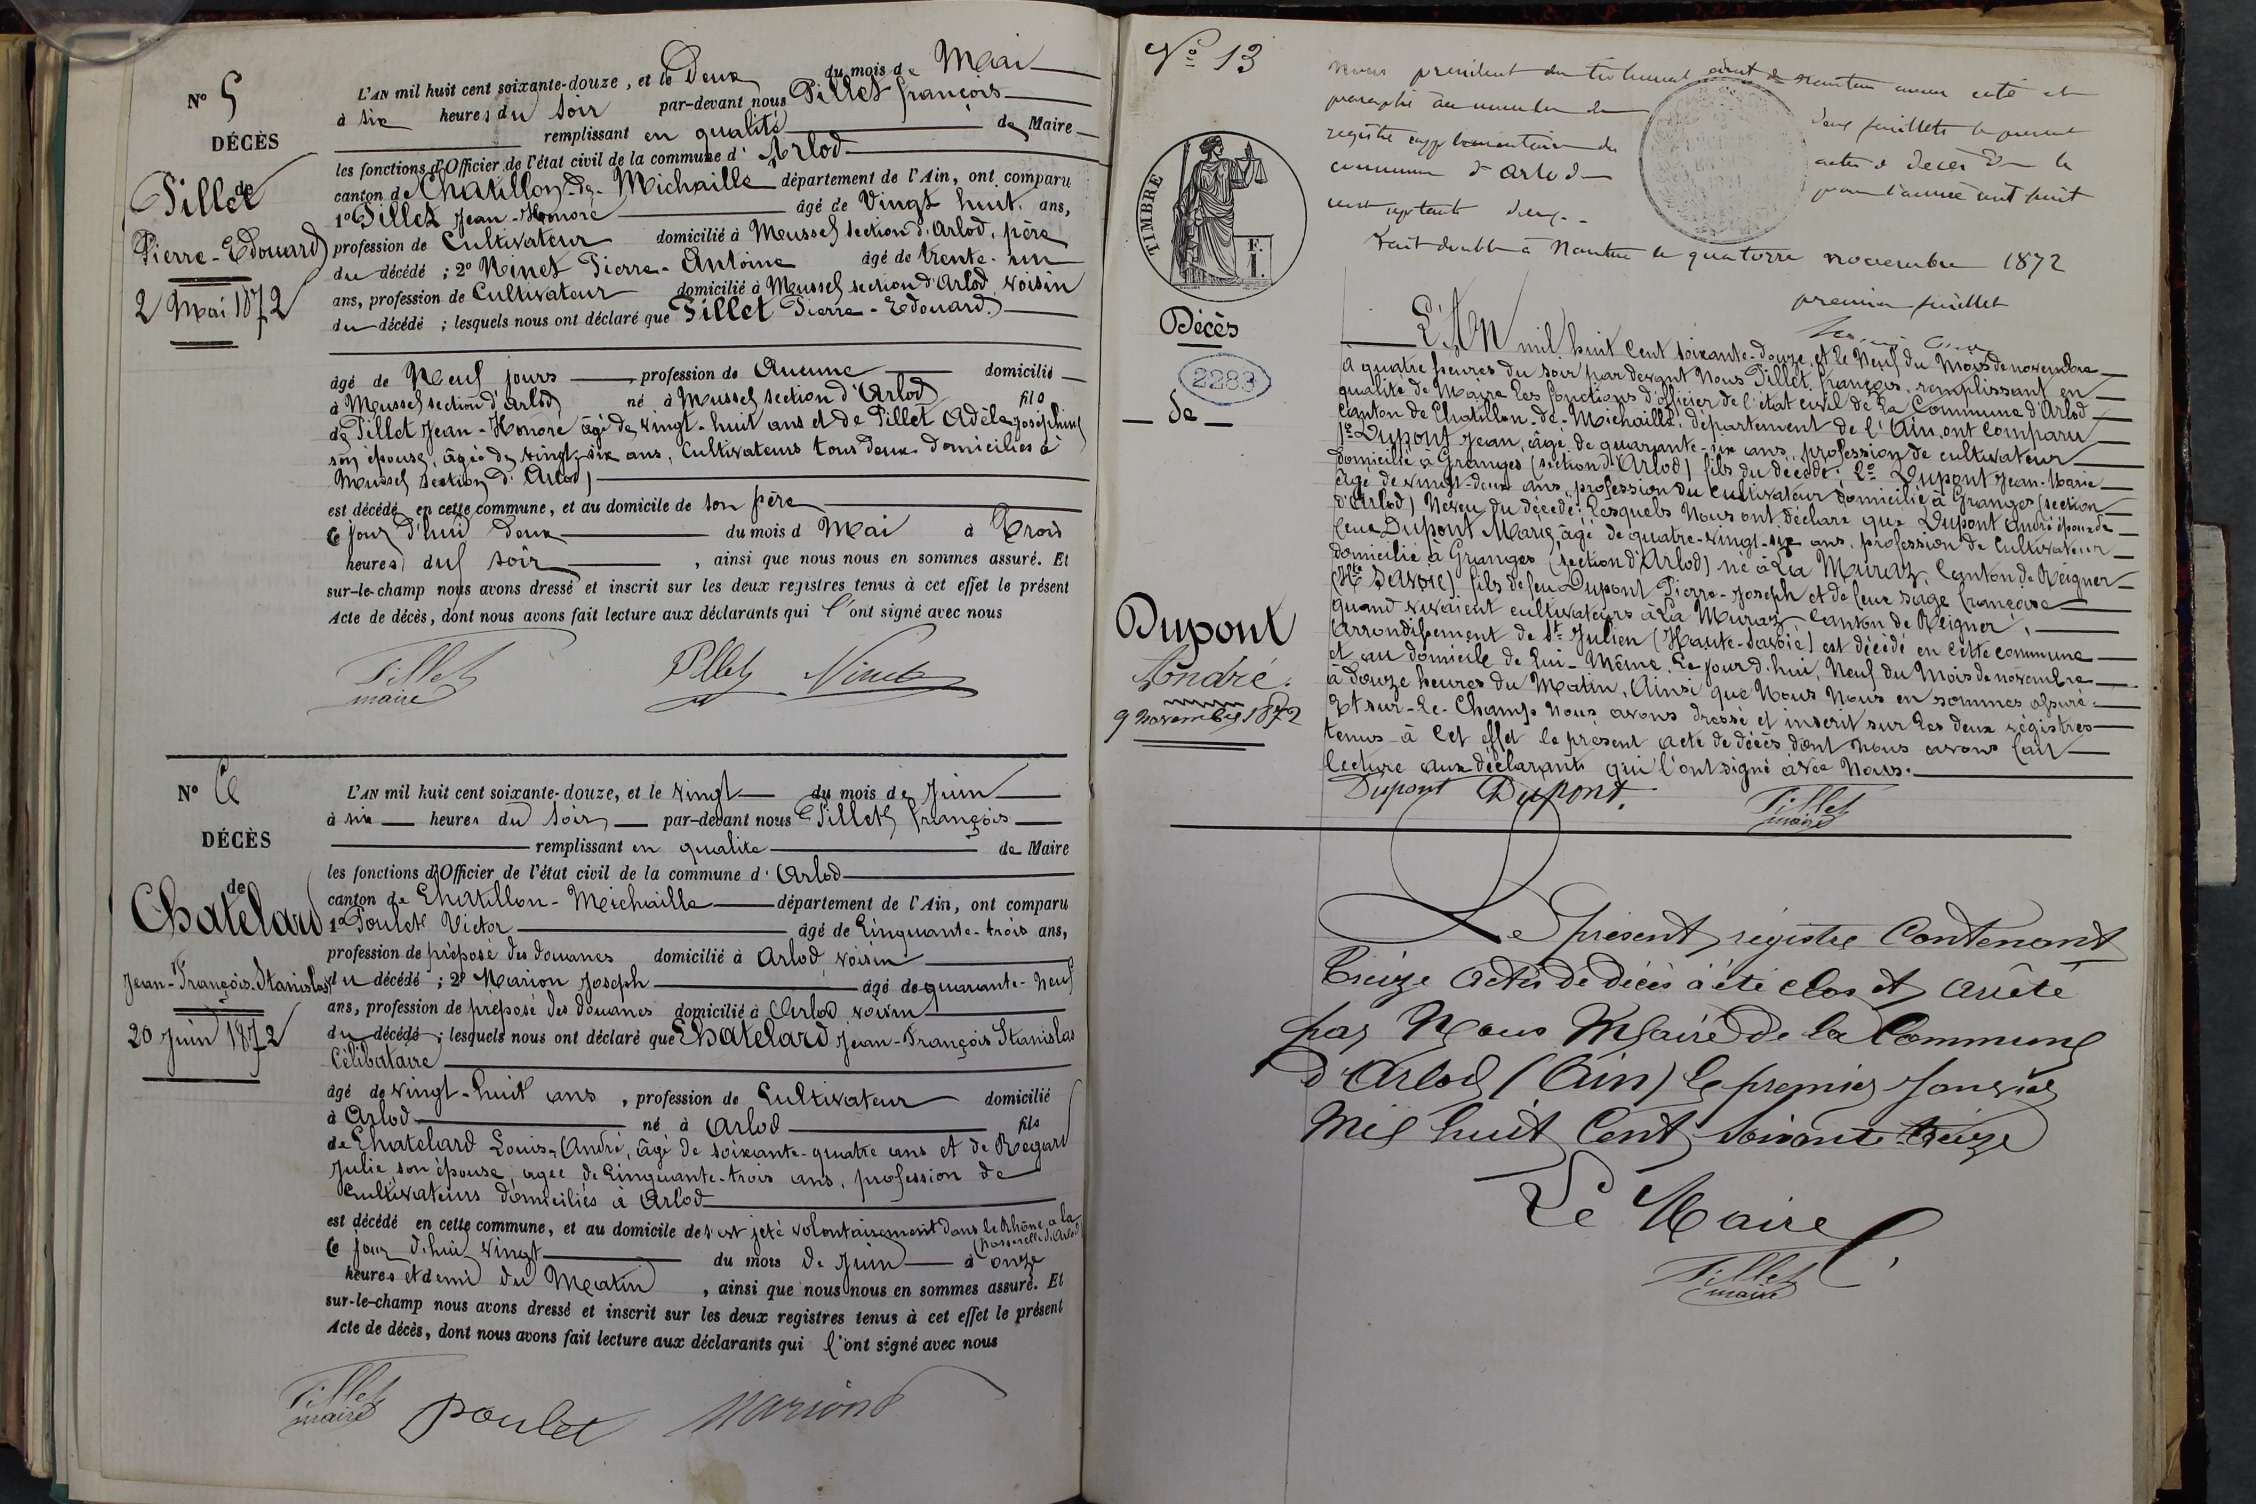 N° 5
DÉCÈS
de
Pillet
Pierre-Edouard
2 Mai 1872
L'AN mil huit cent soixante-douze, et le Deux du mois de Mai
à six heures du soir par-devant nous Pillet françois
remplissant en qualité de Maire
les fonctions d'Officier de l'état civil de la commune d'Arlod
canton de Chatillon-de-Michaille département de l'Ain, ont comparu
1° Pillet Jean-Honoré âgé de Vingt huit ans,
profession de Cultivateur domicilié à Mussel section d'Arlod, père
du décédé ; 2° Ninet Pierre-Antoine âgé de trente-un
ans, profession de Cultivateur domicilié à Mussel section d'Arlod, voisin
du décédé ; lesquels nous ont déclaré que Pillet Pierre-Edouard
âgé de Neuf jours, profession de Aucune domicilié
à Mussel section d'Arlod né à Mussel section d'Arlod fils
de Pillet Jean-Honoré âgé de vingt-huit ans et de Pillet Adèle Joséphine
son épouse, âgée de vingt-six ans, Cultivateurs tous deux domiciliés à
Mussel section d'Arlod
est décédé en cette commune, et au domicile de son père
Ce jour d'hui deux du mois d Mai à Trois
heures du soir, ainsi que nous nous en sommes assuré. Et
sur-le-champ nous avons dressé et inscrit sur les deux registres tenus à cet effet le présent
Acte de décès, dont nous avons fait lecture aux déclarants qui l'ont signé avec nous
Pillet
maire
Pillet Ninet
N° 6
DÉCÈS
de
Chatelard
Jean-François-Stanislas
20 Juin 1872
L'AN mil huit cent soixante-douze, et le vingt du mois de Juin
à six heures du soir par-devant nous Pillet françois
remplissant en qualité de Maire
les fonctions d'Officier de l'état civil de la commune d'Arlod
canton de Chatillon-Michaille département de l'Ain, ont comparu
1° Poulet Victor âgé de Cinquante-trois ans,
profession de préposé des douanes domicilié à Arlod voisin
du décédé ; 2° Marion Joseph âgé de quarante-neuf
ans, profession de préposé des douanes domicilié à Arlod voisin
du décédé ; lesquels nous ont déclaré que Chatelard Jean-François Stanislas
Célibataire
âgé de vingt-huit ans, profession de Cultivateur domicilié
à Arlod né à Arlod fils
de Chatelard Louis-André, âgé de soixante-quatre ans et de Regard
Julie son épouse, agée de Cinquante-trois ans, profession de
Cultivateurs domiciliés à Arlod
est décédé en cette commune, et au domicile de s'est jeté volontairement dans le Rhône, à la
(passerelle d'Arlod)
Ce jour d'hui vingt du mois de Juin à onze
heures et demi du Matin, ainsi que nous nous en sommes assuré. Et
sur-le-champ nous avons dressé et inscrit sur les deux registres tenus à cet effet le présent
Acte de décès, dont nous avons fait lecture aux déclarants qui l'ont signé avec nous
Pillet
maire
Poulet Marion
N° 13
TIMBRE
F.
I.
Décès
2283
de
Dupont
André.
9 novembre 1872
nous président du tribunal civil de Nantua avons coté et
paraphé
deux feuillets le présent
registre supplémentaire des actes de décès de la
commune d'Arlod pour l'année mil huit
cent septante deux.
Fait double à Nantua le quatorze novembre 1872
premier feuillet
L'An mil huit cent soixante-douze, et le Neuf du Mois de novembre
à quatre heures du soir par devant Nous Pillet, françois, remplissant en
qualité de Maire les fonctions d'officier de l'état civil de la Commune d'Arlod
Canton de Chatillon-de-Michaille, département de l'Ain, ont Comparu
1° Dupont Jean, âgé de quarante-six ans, profession de cultivateur
domicilié à Granges (section d'Arlod) fils du décédé ; 2° Dupont Jean-Marie
âgé de vingt-deux ans, profession du Cultivateur domicilié à Granges (section
d'Arlod) Neveu du décédé ; Lesquels Nous ont déclaré que Dupont André époux de
feue Dupont Marie, âgé de quatre-vingt-six ans, profession de Cultivateur
domicilié à Granges (section d'Arlod) né à La Muraz, Canton de Reignier
(Hte Savoie), fils de feu Dupont Pierre-Joseph et de feue Sage françoise
quand vivaient cultivateurs à La Muraz, Canton de Reigner,
Arrondissement de St-Julien (Haute-Savoie) est décédé en cette commune
et au domicile de lui-Même. Ce jour d'hui, Neuf du Mois de novembre
à Douze heures du Matin, Ainsi que Nous Nous en sommes assuré.
Et sur-le-Champ Nous avons dressé et inscrit sur les deux régistres
tenus à Cet effet le présent acte de décès, dont nous avons fait
lecture aux déclarants qui l'ont signé avec Nous.
Dupont Dupont. Pillet
maire
Le présent régistre Contenant
Treize Actes de décès à été clos et arrêté
par Nous Maire de la Commune
d'Arlod (Ain) le premier Janvier
Mil huit Cent soixante-treize
Le Maire
Pillet
maire